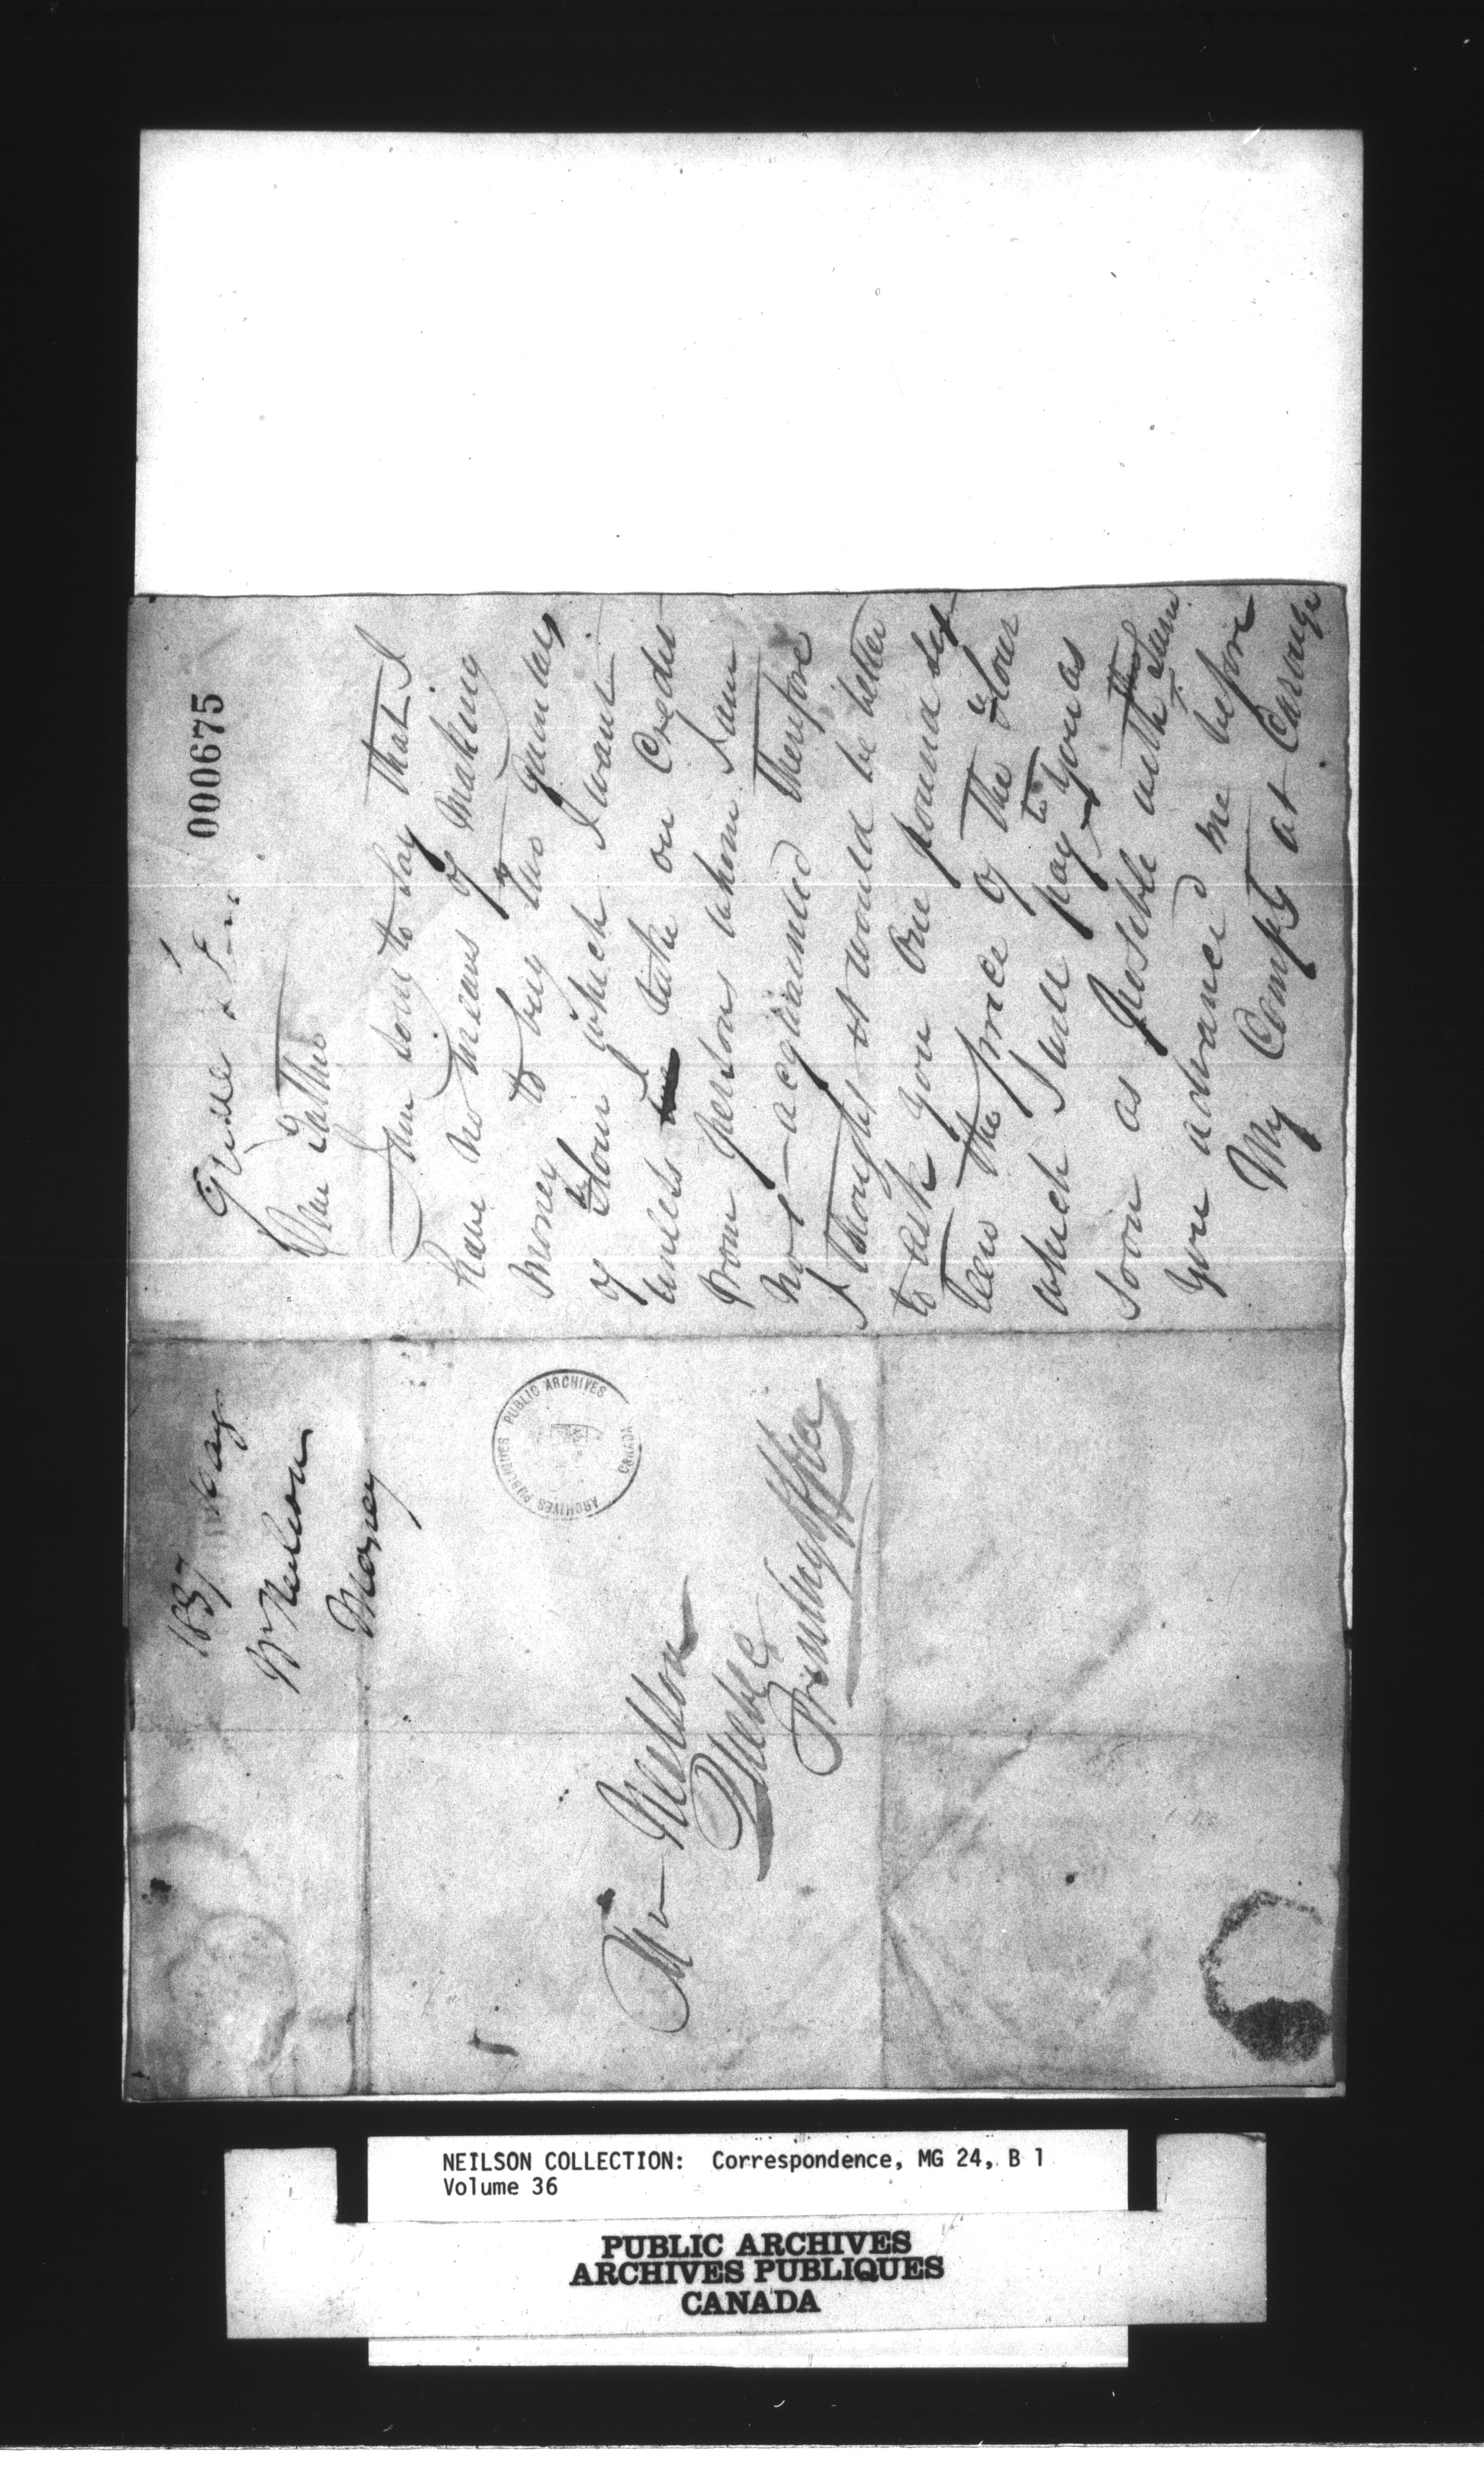 000675
Dear Father
I am sorry to say that I
have no means of Making
Money to buy two quintals
of flour which I want
unless I take on Credit
from persons whom I am
not acquainted Therefore
I thought it would be better
to ask you One pound six
been the price of the flour
which I will pay to you as
soon as possible with
you advanced me before
My Compts at
1837 May
W Neilson
Money
PUBLIC ARCHIVES CANADA
ARCHIVES PUBLIQUES
Mr Neilson
Quebec
Printing office
NEILSON COLLECTION: Correspondence, MG 24, B 1
Volume 36
PUBLIC ARCHIVES
ARCHIVES PUBLIQUES
CANADA